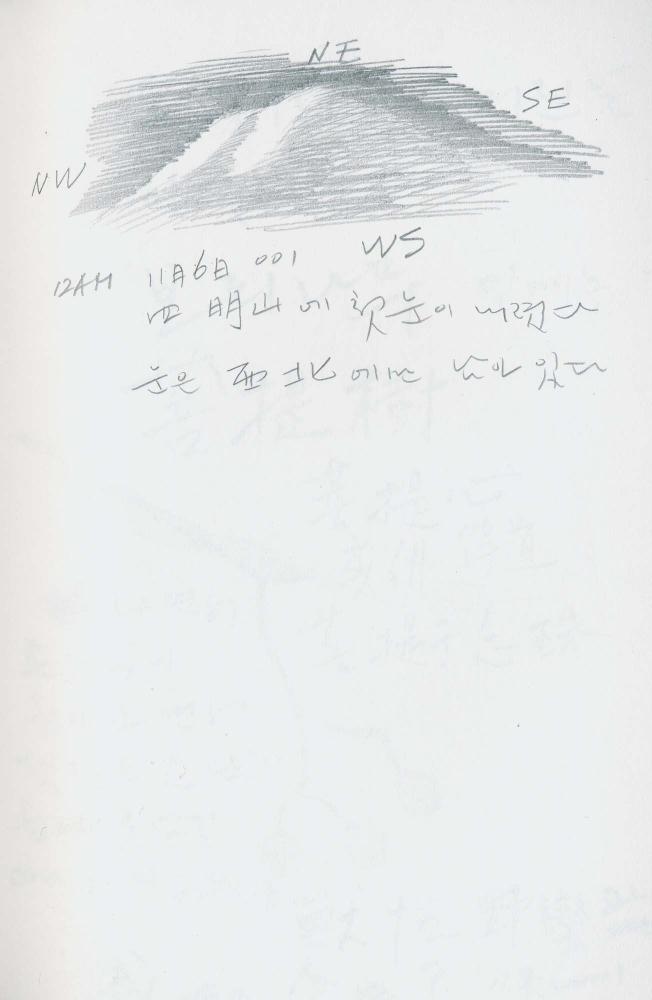 NE
SE
NW
WS
12AM 11月6日 001
四明山에 첫눈이 내렸다
눈은 西北에만 남아 있다